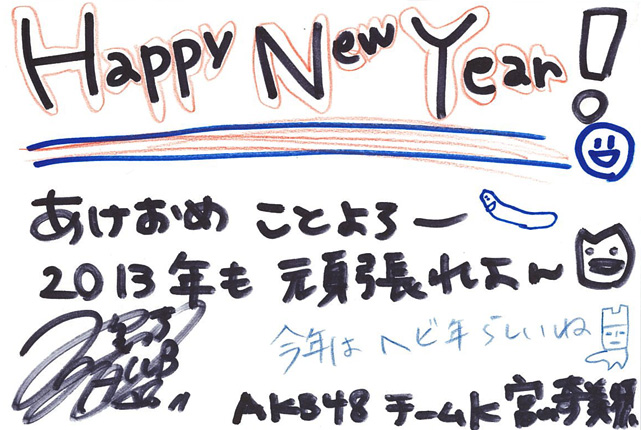 Happy New Year!
あけおめ ことよろー
2013年も 頑張れよ〜
今年は ヘビ年らしいね
AKB48 チームK 宮崎美穂